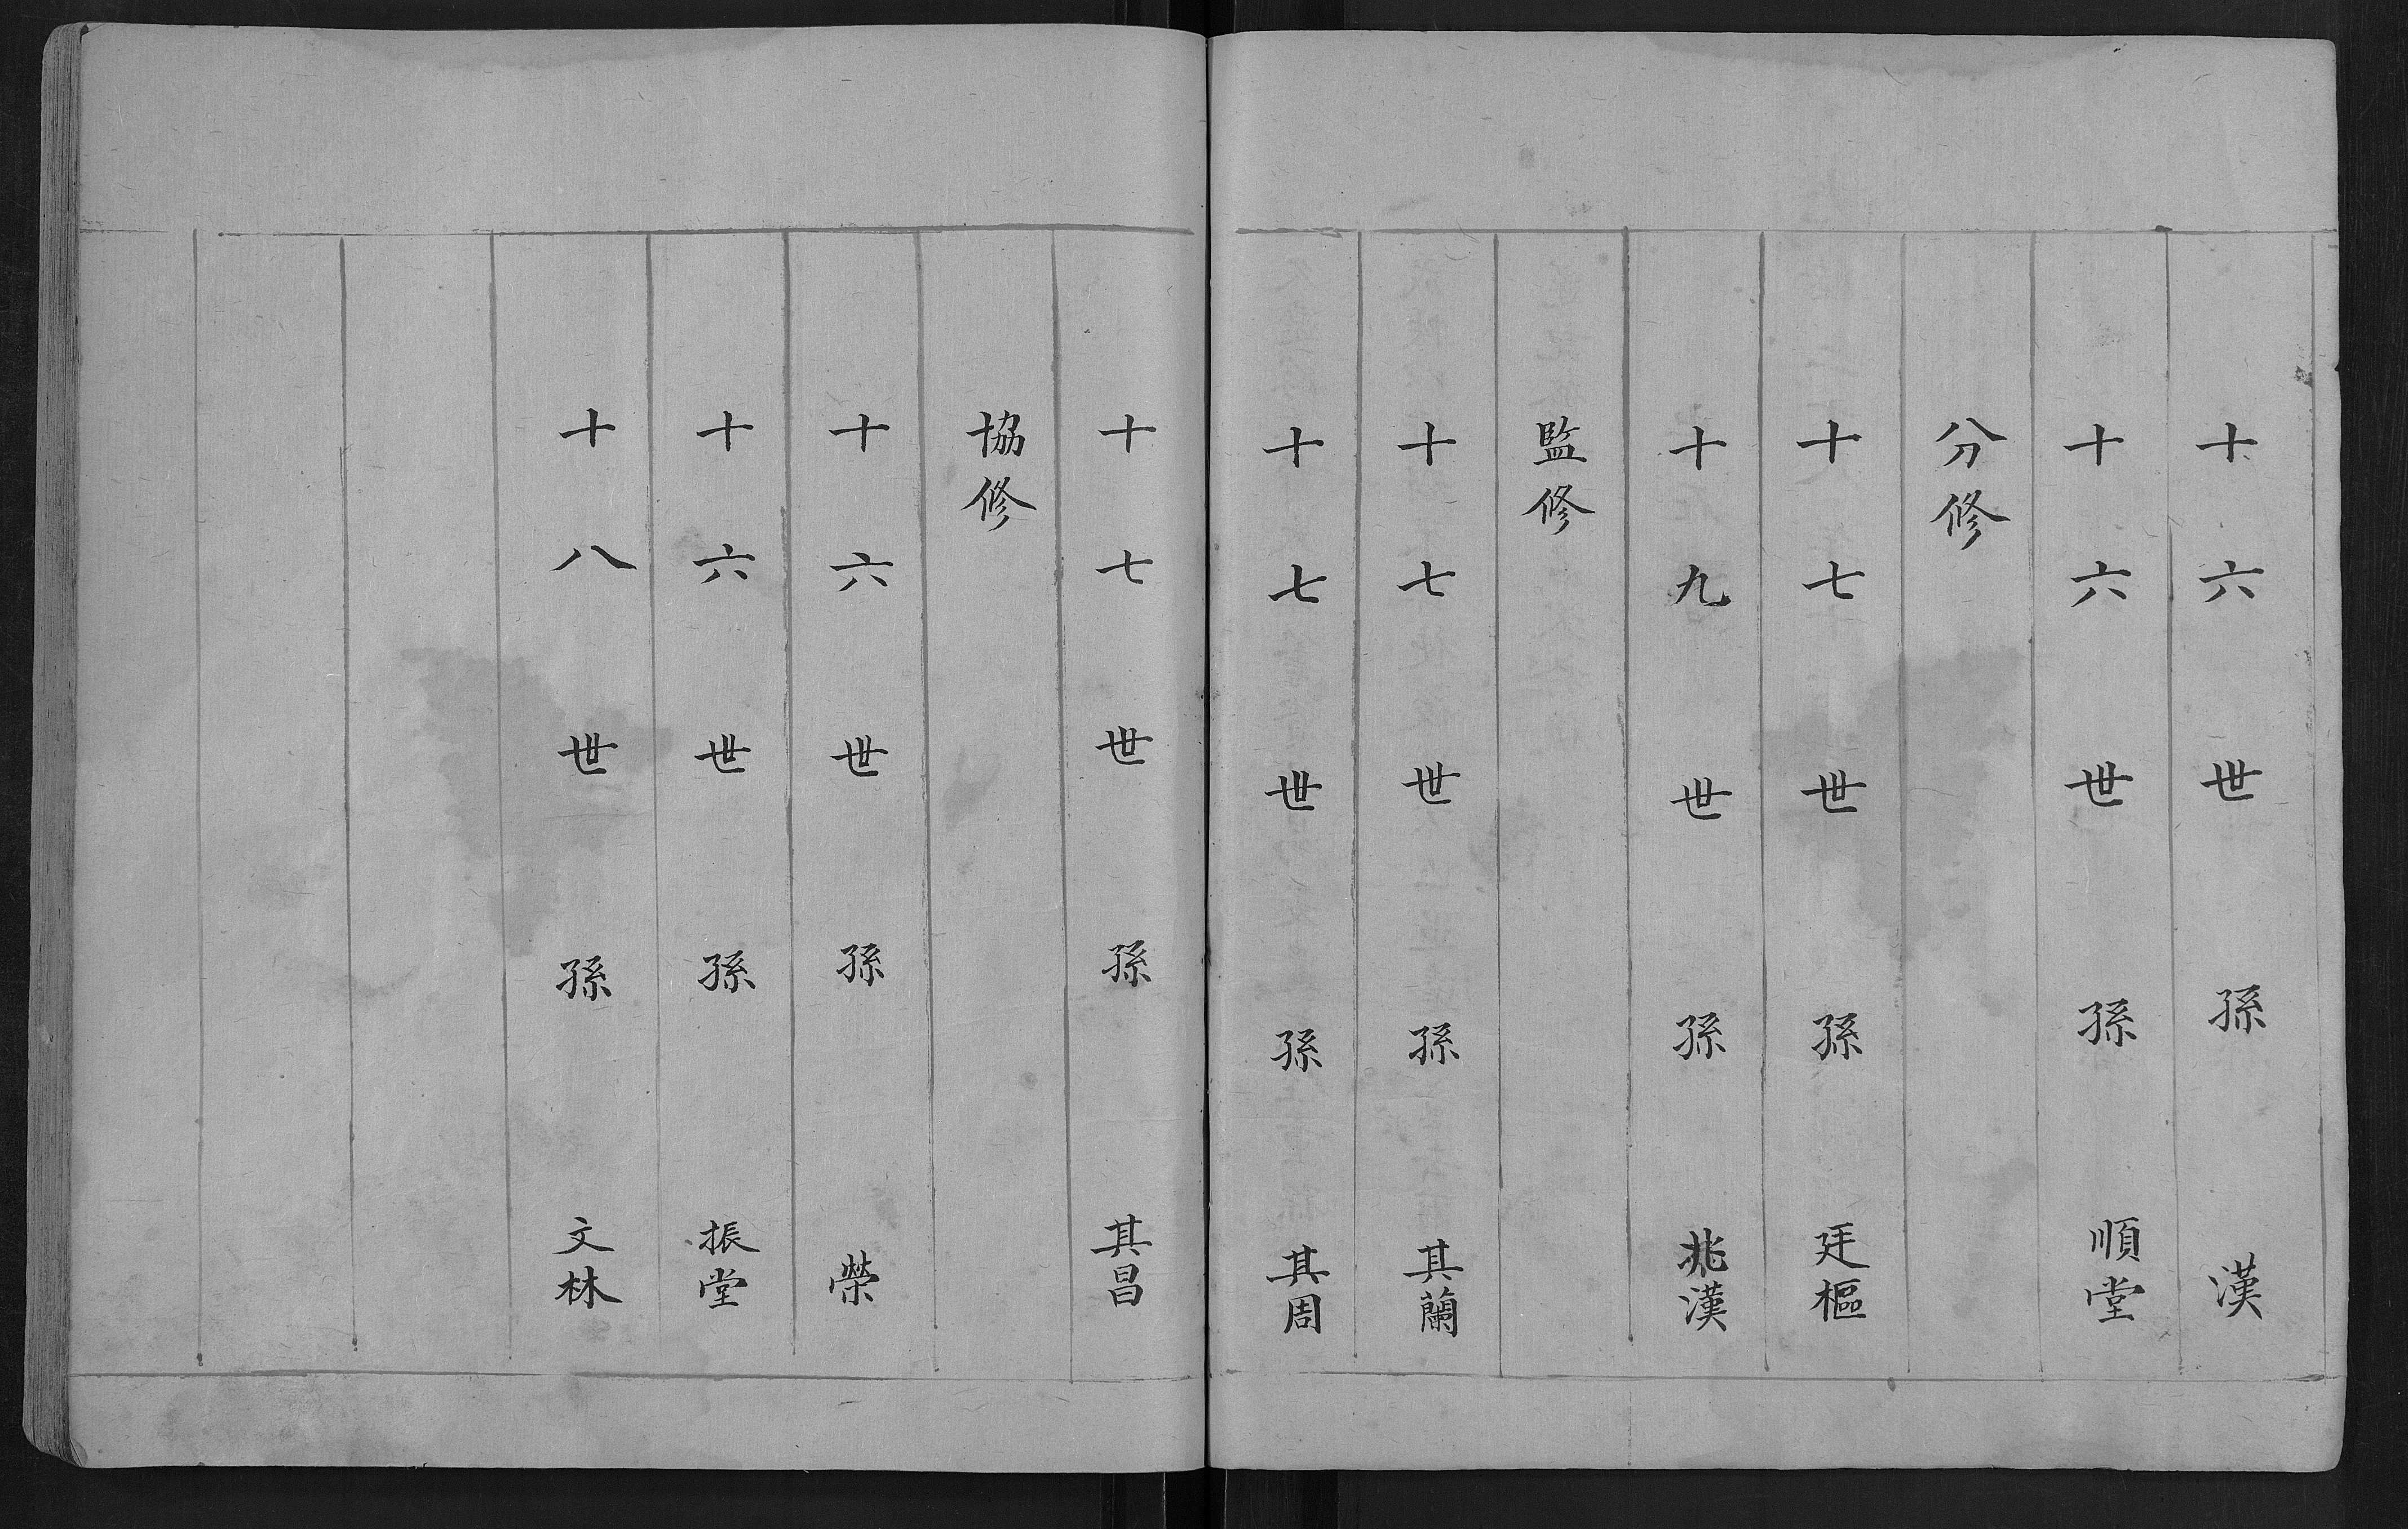 十六世孫漢
十六世孫順堂
分修
十七世孫廷樞
十九世孫兆漢
監修
十七世孫其蘭
十七世孫其周
十七世孫其昌
協修
十六世孫榮
十六世孫振堂
十八世孫文林